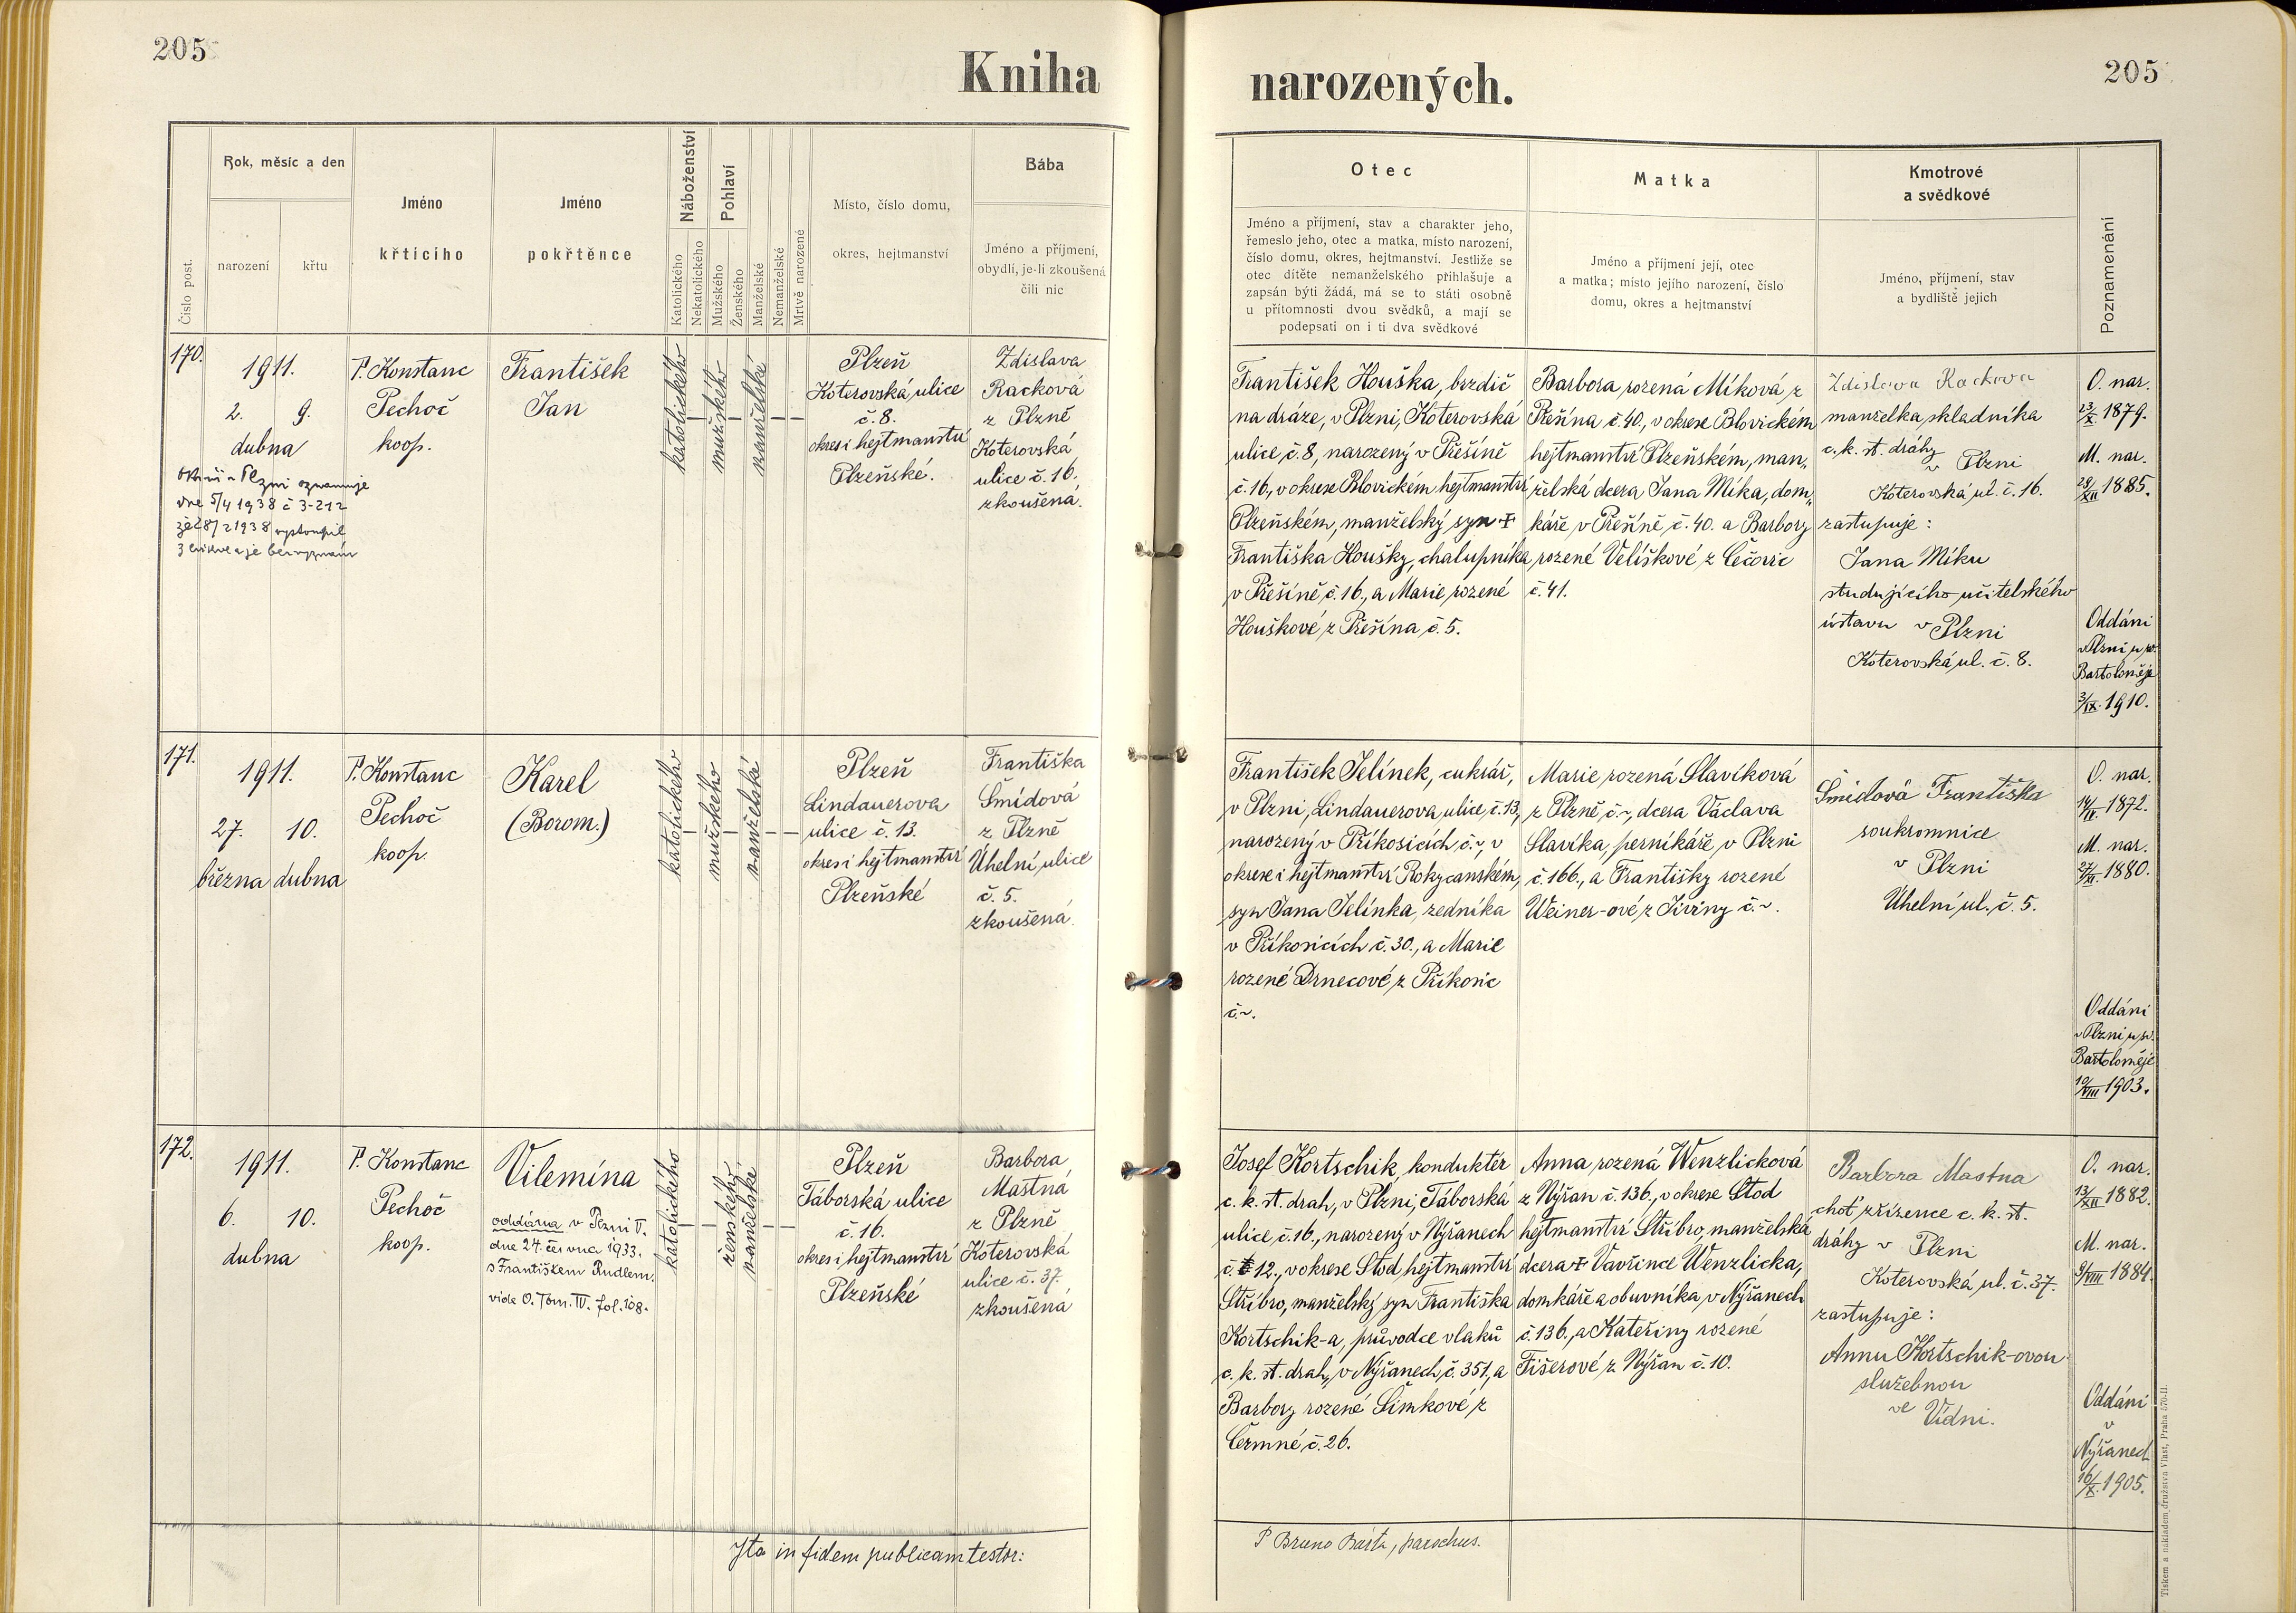 205
Kniha
narozených.
205
Číslo post.
Rok, měsíc a den
narození
křtu
Jméno
křticího
Jméno
pokřtěnce
Náboženství
Katolického
Nekatolického
Pohlaví
Mužského
Ženského
Manželské
Nemanželské
Mrtvě narozené
Místo, číslo domu,
okres, hejtmanství
Bába
Jméno a příjmení,
obydlí, je-li zkoušená
čili nic
Otec
Jméno a příjmení, stav a charakter jeho,
řemeslo jeho, otec a matka, místo narození,
číslo domu, okres, hejtmanství. Jestliže se
otec dítěte nemanželského přihlašuje a
zapsán býti žádá, má se to státi osobně
u přítomnosti dvou svědků, a mají se
podepsati on i ti dva svědkové
Matka
Jméno a příjmení její, otec
a matka; místo jejího narození, číslo
domu, okres a hejtmanství
Kmotrové
a svědkové
Jméno, příjmení, stav
a bydliště jejich
Poznamenání
170.
1911.
2. 9.
dubna
dne 5/4 1938 č 3-212
P. Konstanc
Pechoč
koop.
František
Jan
katolického
mužského
manželské
Plzeň
Koterovská ulice
č. 8.
okres i hejtmanství
Plzeňské.
Zdislava
Racková
z Plzně
Koterovská
ulice č. 16.
zkoušená.
František Houška, brzdič
na dráze, v Plzni, Koterovská
ulice č. 8, narozený v Přešíně
č. 16., v okrese Blovickém hejtmanství
Plzeňském, manželský syn †
Františka Houšky, chalupníka
v Přešíně č. 16., a Marie rozené
Houškové z Přešína č. 5.
Barbora rozená Míková z
Přešína č. 40., v okrese Blovickém
hejtmanství Plzeňském, man„
želská dcera Jana Míka, dom„
káře v Přešíně č. 40. a Barbory
rozené Velíškové z Čečovic
č. 41.
Zdislava Racková
manželka skladníka
c. k. st. dráhy
v Plzni
Koterovská ul. č. 16.
zastupuje:
Jana Míku
studujícího učitelského
ústavu v Plzni
Koterovská ul. č. 8.
O. nar.
23/X. 1879.
M. nar.
28/XII 1885.
Oddáni
v Plzni u sv.
Bartoloměje
3/IX. 1910.
171.
1911.
27. 10.
března dubna
P. Konstanc
Pechoč
koop.
Karel
(Borom.)
katolického
mužského
manželské
Plzeň
Lindauerova
ulice č. 13.
okres i hejtmanství
Plzeňské
Františka
Šmídová
z Plzně
Úhelní ulice
č. 5.
zkoušená.
František Jelínek, cukrář,
v Plzni, Lindauerova ulice č. 13,
narozený v Příkosicích č. ~, v
okrese i hejtmanství Rokycanském,
syn Jana Jelínka, zedníka
v Příkosicích č. 30., a Marie
rozené Drnecové z Příkosic
č. ~.
Marie rozená Slavíková
z Plzně č. ~, dcera Václava
Slavíka, perníkáře v Plzni
č. 166., a Františky rozené
Weiner-ové z Jiviny č. ~.
Šmídová Františka
soukromnice
v Plzni
Úhelní ul. č. 5.
O. nar.
14/IV. 1872.
M. nar.
27/XI. 1880.
Oddáni
v Plzni u sv.
Bartoloměje
10/VIII 1903.
172.
1911.
6. 10.
dubna
P. Konstanc
Pechoč
koop.
Vilemína
oddána v Plzni V.
dne 24. června 1933.
s Františkem Rudlem.
vide O. Tom. IV. fol. 108.
katolického
ženského
manželské
Plzeň
Táborská ulice
č. 16.
okres i hejtmanství
Plzeňské
Barbora
Mastná
z Plzně
Koterovská
ulice č. 37.
zkoušená
Josef Kortschik, konduktér
c. k. st. drah, v Plzni, Táborská
ulice č. 16., narozený v Nýřanech
č. 12., v okrese Stod, hejtmanství
Stříbro, manželský syn Františka
Kortschik-a, průvodce vlaků
c. k. st. drah, v Nýřanech, č. 351., a
Barbory rozené Šimkové z
Čermné, č. 26.
Anna rozená Wenzlicková
z Nýřan č. 136., v okrese Stod
hejtmanství Stříbro, manželská
dcera † Vavřince Wenzlicka,
domkáře a obuvníka v Nýřanech
č. 136., a Kateřiny rozené
Fišerové z Nýřan č. 10.
Barbora Mastna
choť zřízence c. k. st.
dráhy v Plzni
Koterovská ul. č. 37.
zastupuje:
Annu Kortschik-ovou
služebnou
ve Vídni.
O. nar.
13/XII 1882.
M. nar.
9/VIII 1884.
Oddáni
v
Nýřanech
16/X. 1905.
Ita in fidem publicam testor:
P Bruno Bárta, parochus.
Tiskem a nákladem družstva Vlast, Praha 570-II.